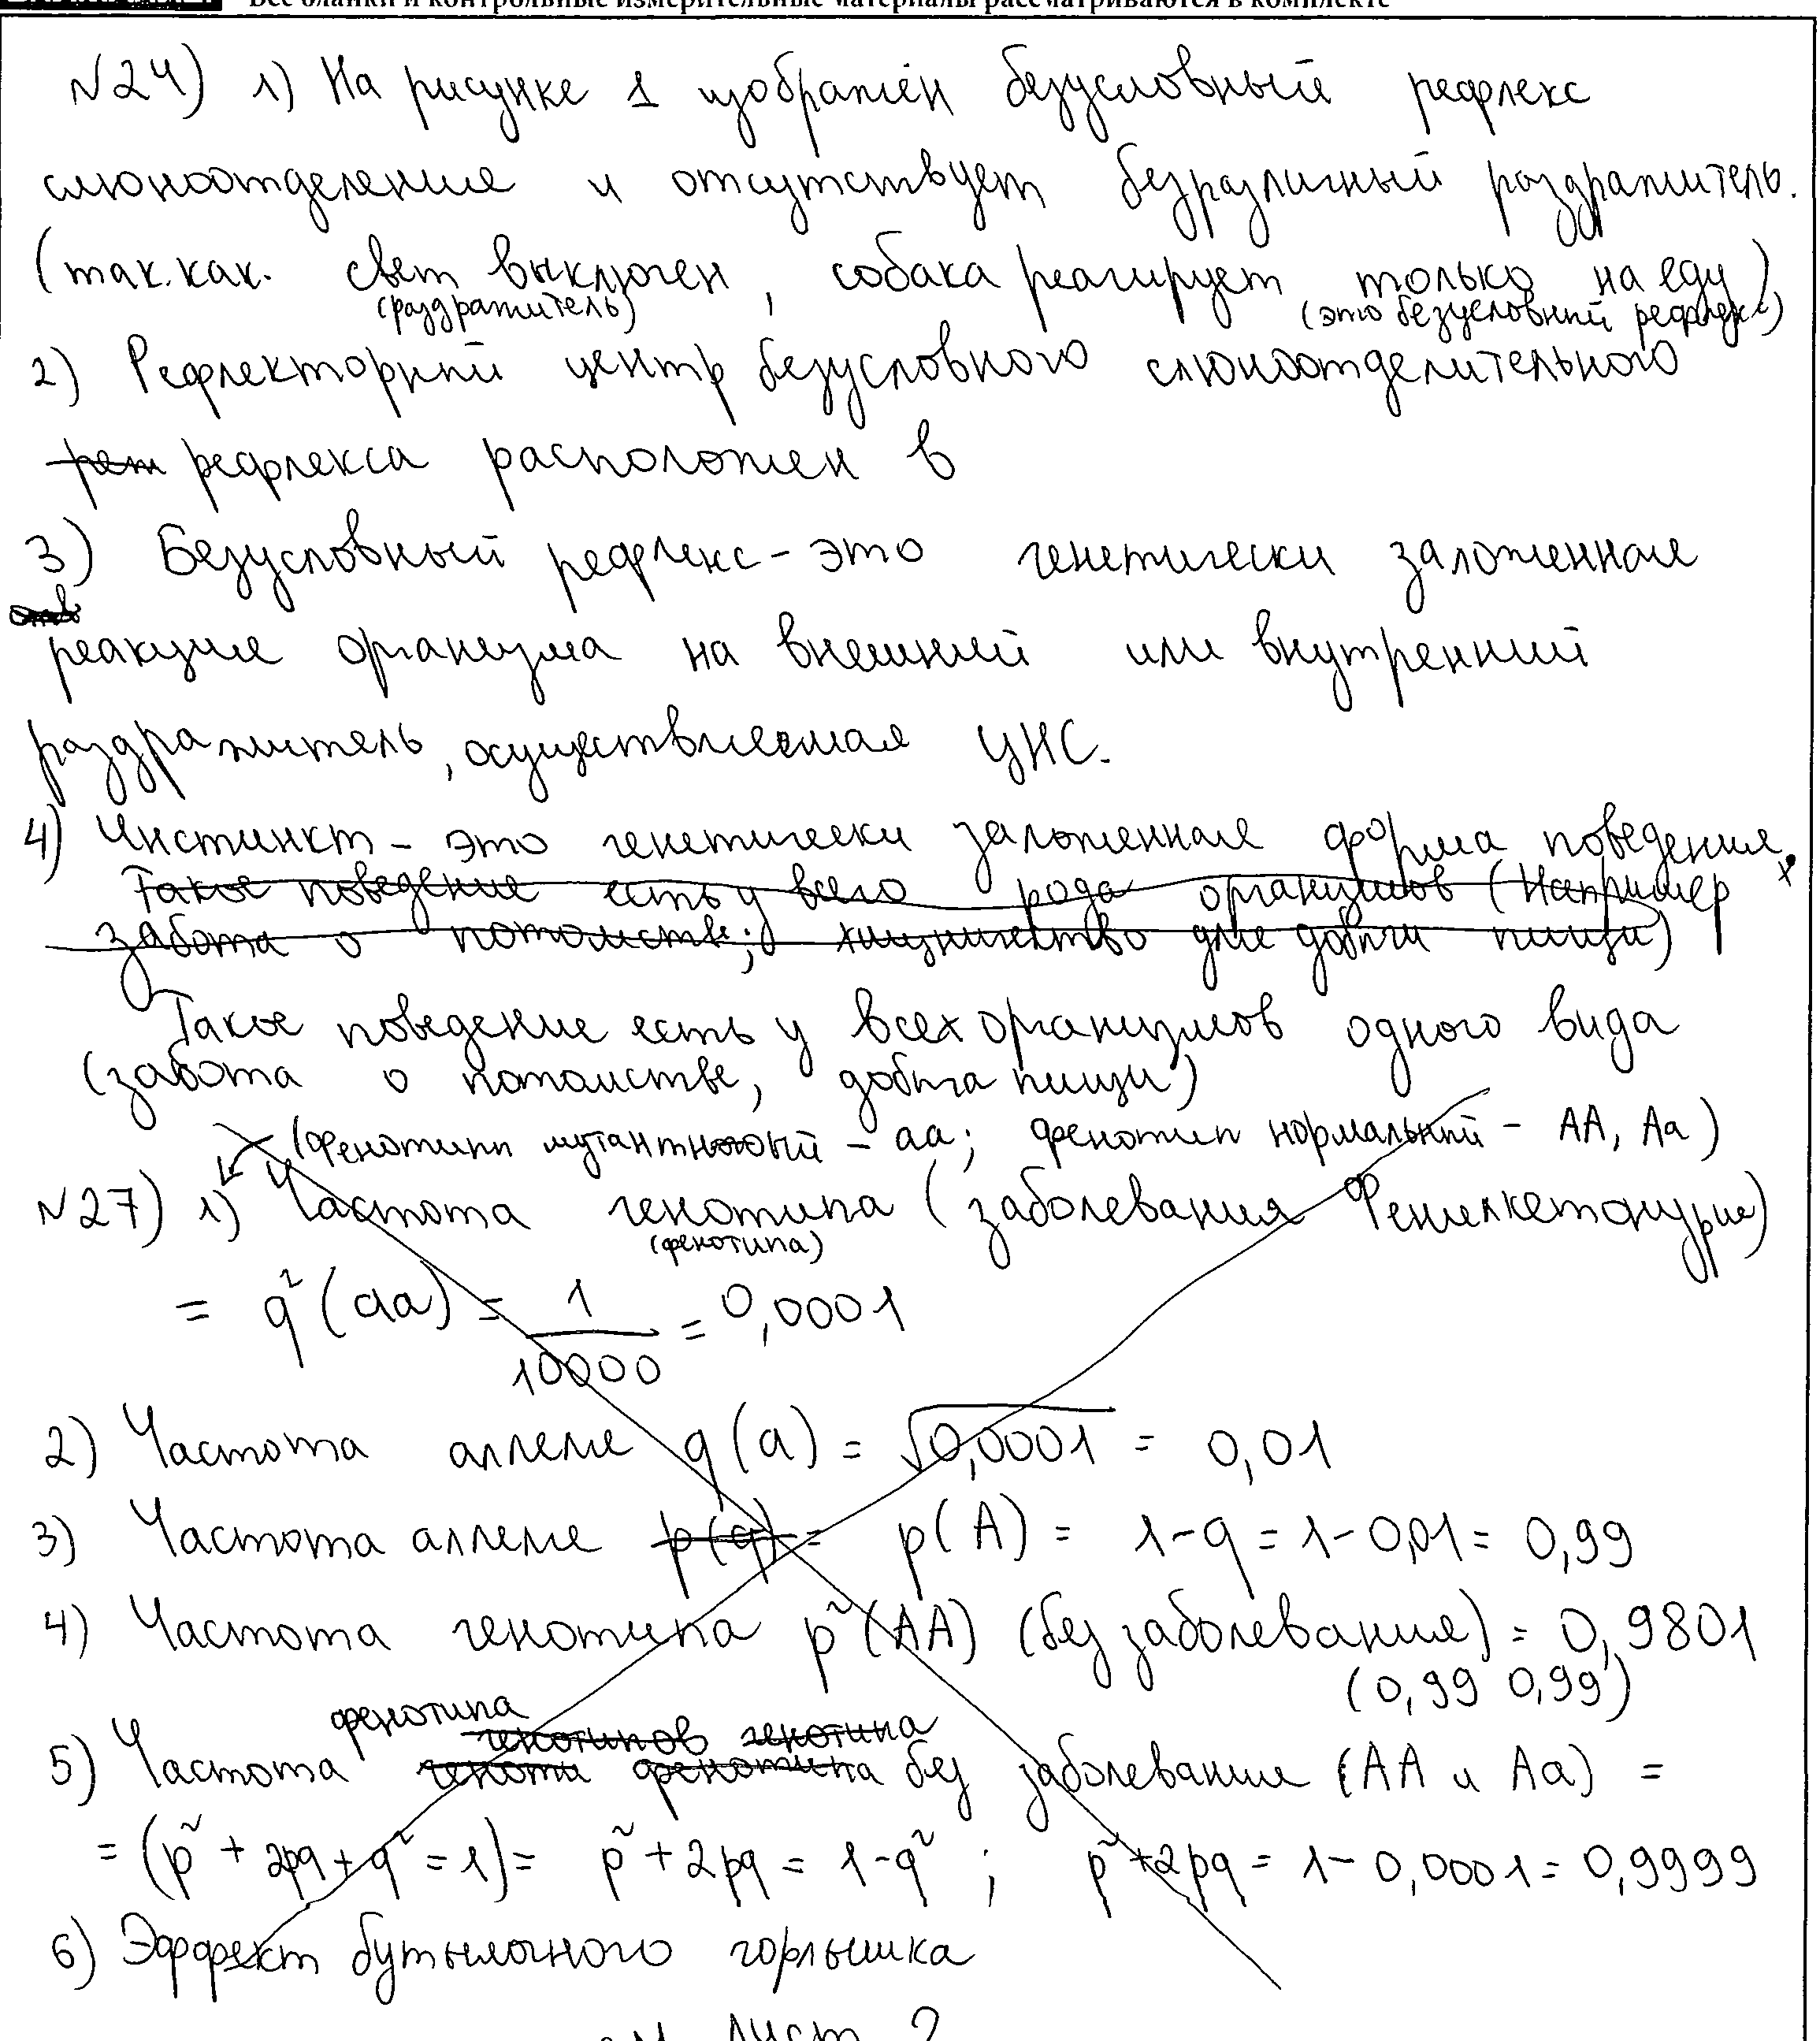 Все бланки и контрольные измерительные материалы рассматриваются в комплекте
№24) 1) На рисунке 1 изображён безусловный рефлекс
слюноотделения и отсутствует безразличный раздражитель.
(так.как. свет выключен, собака реагирует только на еду)
(раздражитель) (это безусловный рефлекс)
2) Рефлекторный центр безусловного слюноотделительного
рефлекса расположен в
3) Безусловный рефлекс - это генетически заложенная
реакция организма на внешний или внутренний
раздражитель, осуществляемая ЦНС.
4) Инстинкт - это генетически заложенная форма поведения.
Такое поведение есть у всего рода организмов (Например
забота о потомстве; хищничество для добычи пищи)
Такое поведение есть у всех организмов одного вида
(забота о потомстве, добыча пищи)
(фенотип мутантный - aa; фенотип нормальный - AA, Aa)
№27) 1) Частота генотипа (заболевания Фенилкетонурия)
(фенотипа)
= q²(aa) = 1/10000 = 0,0001
2) Частота аллеля q(a) = √0,0001 = 0,01
3) Частота аллеля p(q) = p(A) = 1-q = 1-0,01 = 0,99
4) Частота генотипа p²(AA) (без заболевания) = 0,9801
(0,99 0,99)
фенотипа генотипов генотипа
5) Частота геноти фенотипа без заболевания (AA и Aa) =
= (p² + 2pq + q² = 1) = p² + 2pq = 1-q² ; p²+2pq = 1-0,0001 = 0,9999
6) Эффект бутылочного горлышка
лист 2